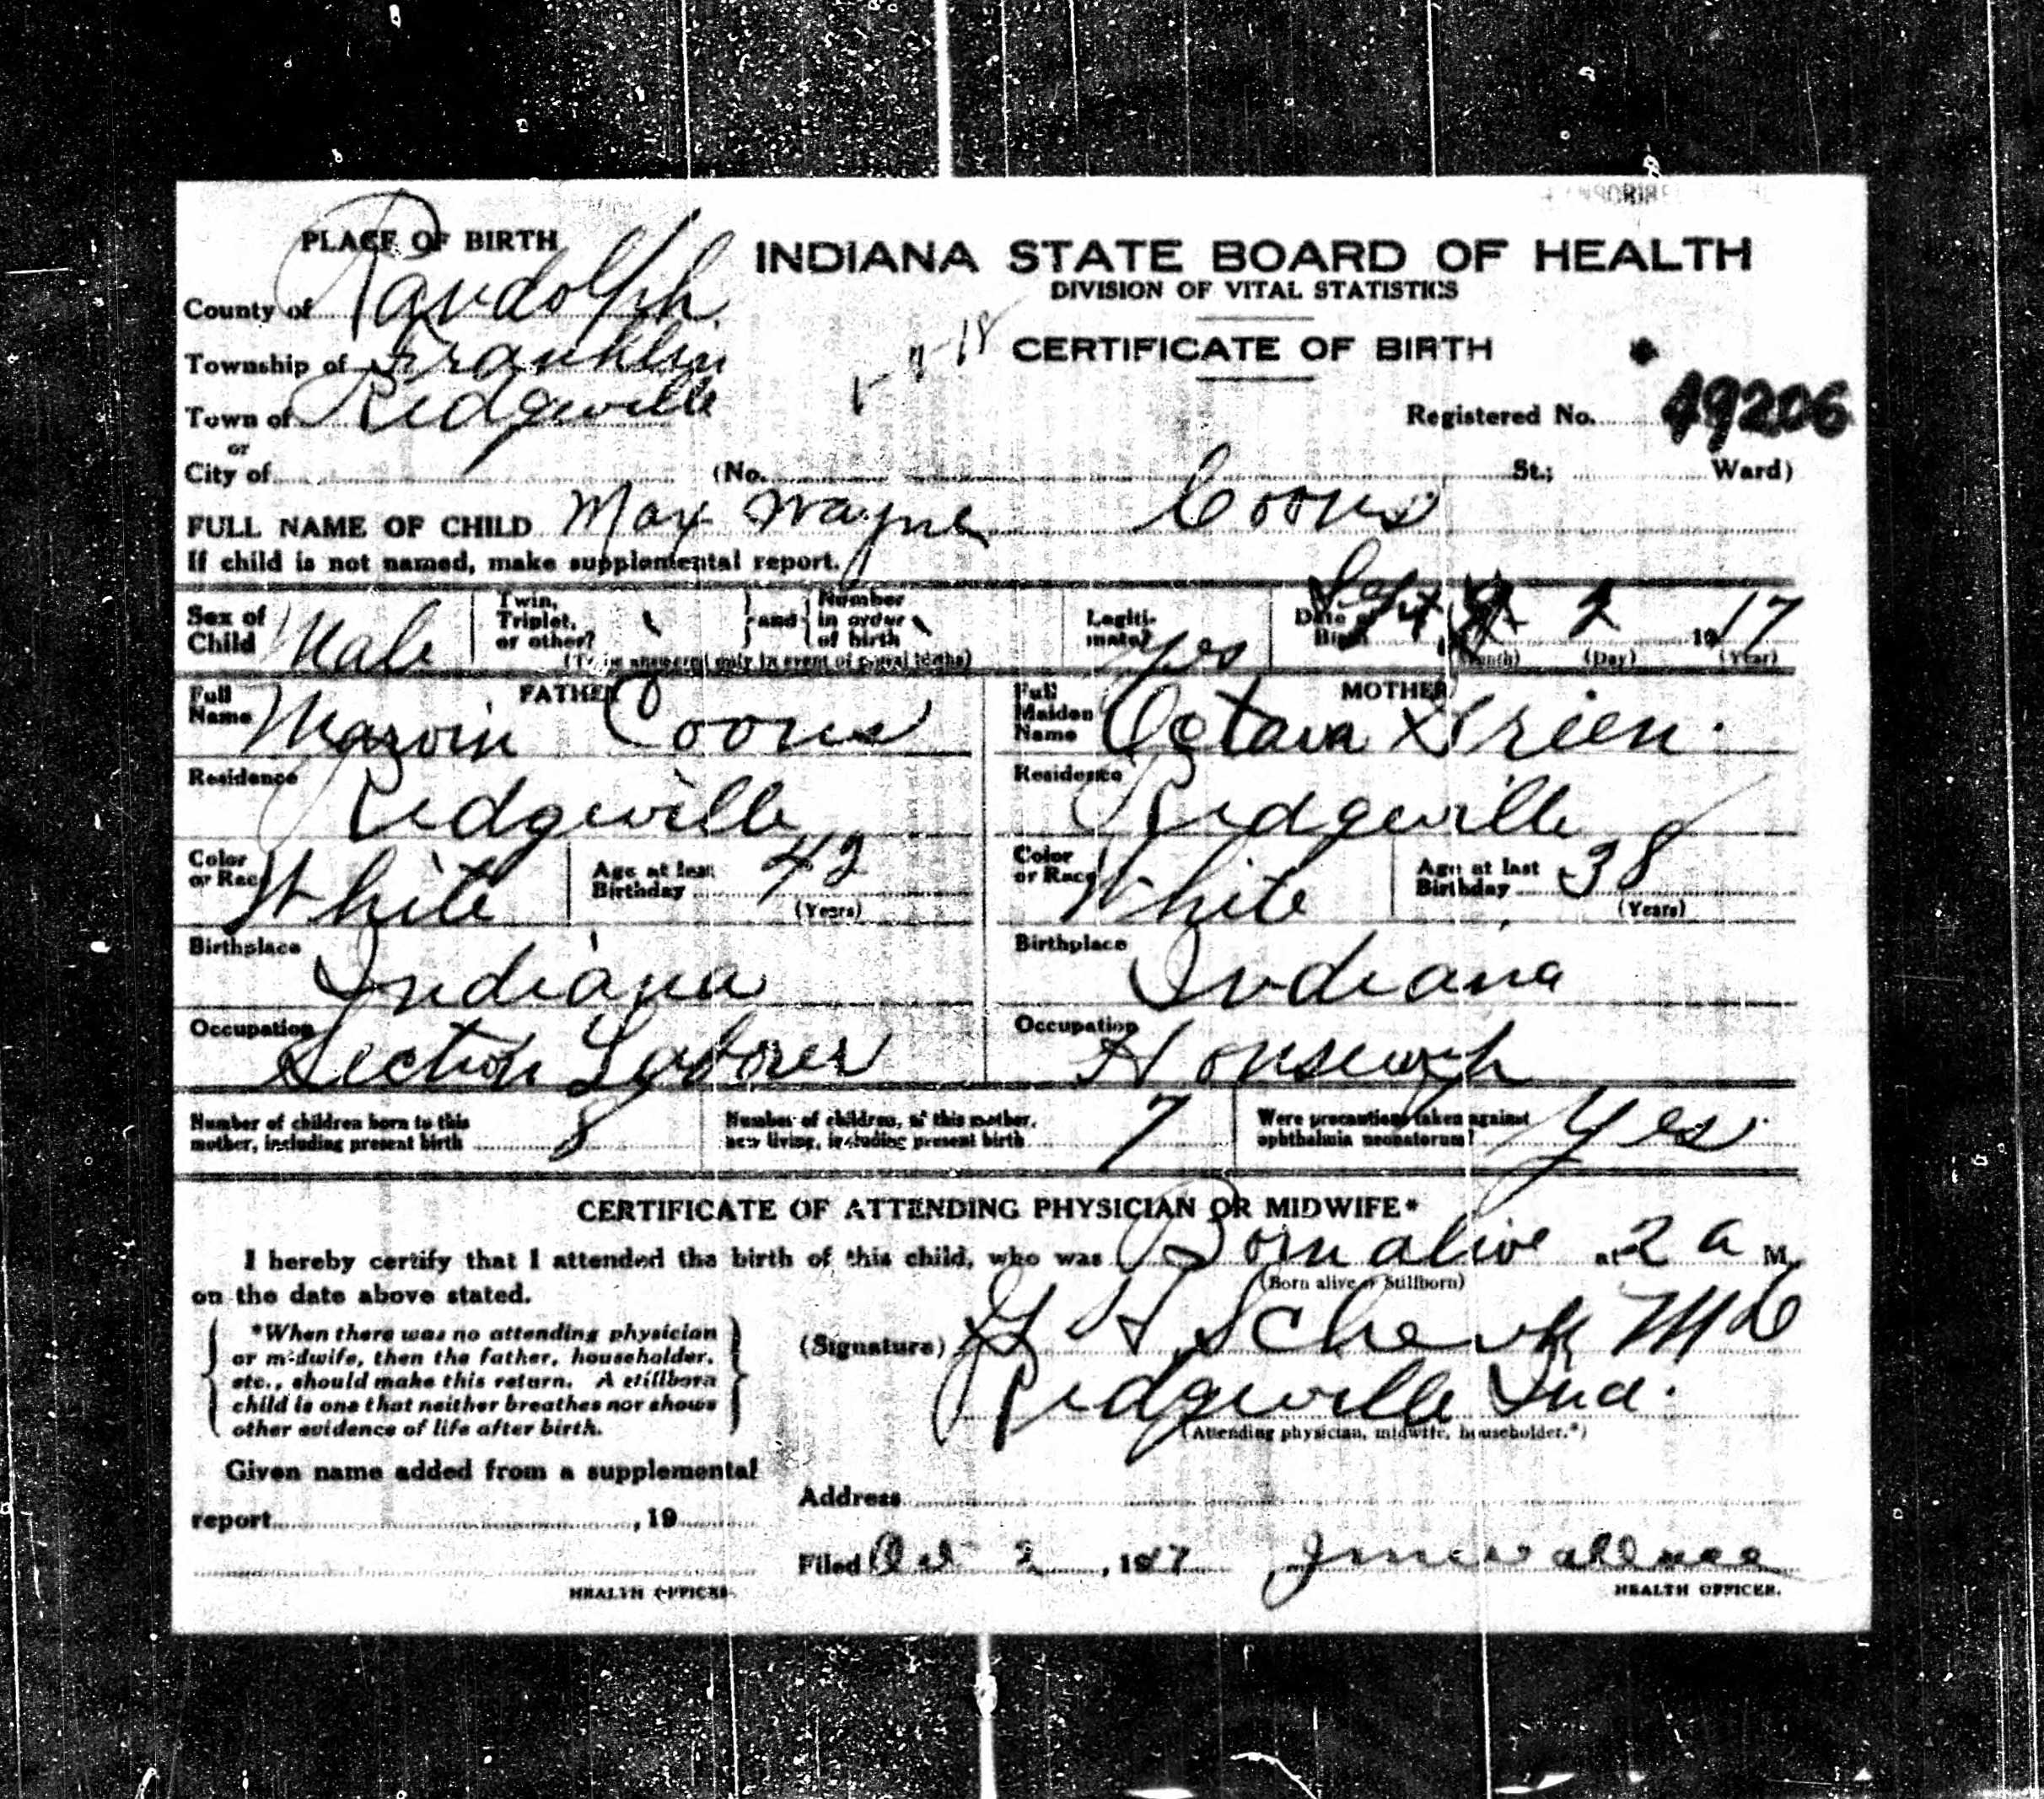 PLACE OF BIRTH
INDIANA STATE BOARD OF HEALTH
DIVISION OF VITAL STATISTICS
CERTIFICATE OF BIRTH
County of Randolph
Township of Franklin
Town of Ridgeville
or
City of (No. St.; Ward)
Registered No. 49206
FULL NAME OF CHILD Max Wayne Coons
If child is not named, make supplemental report.
Sex of Child Male
Twin, Triplet, or other? and Number in order of birth
(To be answered only in event of plural births)
Legitimate? yes
Date of Birth Sept 2 1917
(Month) (Day) (Year)
FATHER
Full Name Marvin Coons
Residence Ridgeville
Color or Race White
Age at last Birthday 42
(Years)
Birthplace Indiana
Occupation Section Laborer
MOTHER
Full Maiden Name Octava Green
Residence Ridgeville
Color or Race White
Age at last Birthday 38
(Years)
Birthplace Indiana
Occupation Housewife
Number of children born to this mother, including present birth 8
Number of children, of this mother, now living, including present birth 7
Were precautions taken against ophthalmia neonatorum? Yes
CERTIFICATE OF ATTENDING PHYSICIAN OR MIDWIFE*
I hereby certify that I attended the birth of this child, who was Born alive at 2 a M.
(Born alive or Stillborn)
on the date above stated.
*When there was no attending physician
or midwife, then the father, householder,
etc., should make this return. A stillborn
child is one that neither breathes nor shows
other evidence of life after birth.
(Signature) Schenk MD
Ridgeville Ind.
(Attending physician, midwife, householder.*)
Given name added from a supplemental
report , 19
HEALTH OFFICER.
Address
Filed Oct 2, 1917 Wallace
HEALTH OFFICER.